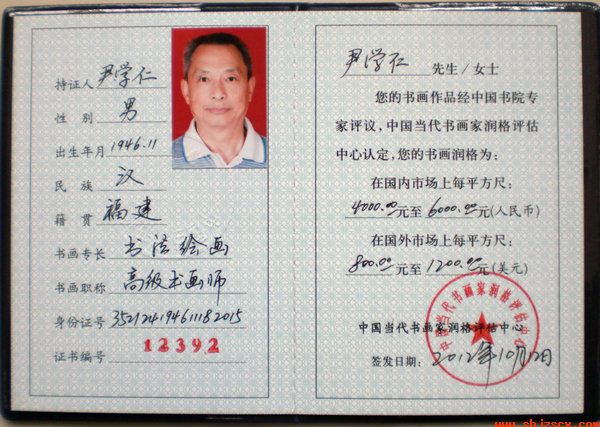 持证人 尹学仁
性 别 男
出生年月 1946.11
民 族 汉
籍 贯 福建
书画专长 书法绘画
书画职称 高级书画师
身份证号 352124194611182015
证书编号 12392
尹学仁 先生/女士
您的书画作品经中国书院专
家评议，中国当代书画家润格评估
中心认定，您的书画润格为：
在国内市场上每平方尺：
4000.00元至 6000.00元(人民币)
在国外市场上每平方尺：
800.00元至 1200.00元(美元)
中国当代书画家润格评估中心
中国当代书画家润格评估中心
签发日期： 2012年10月12日
www.sbjzscx.com